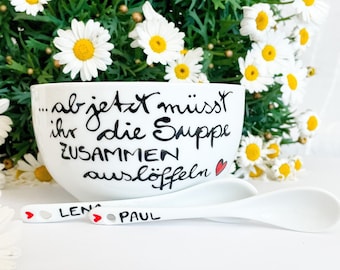 ...ab jetzt müsst
ihr die Suppe
ZUSAMMEN
auslöffeln
LENA
PAUL